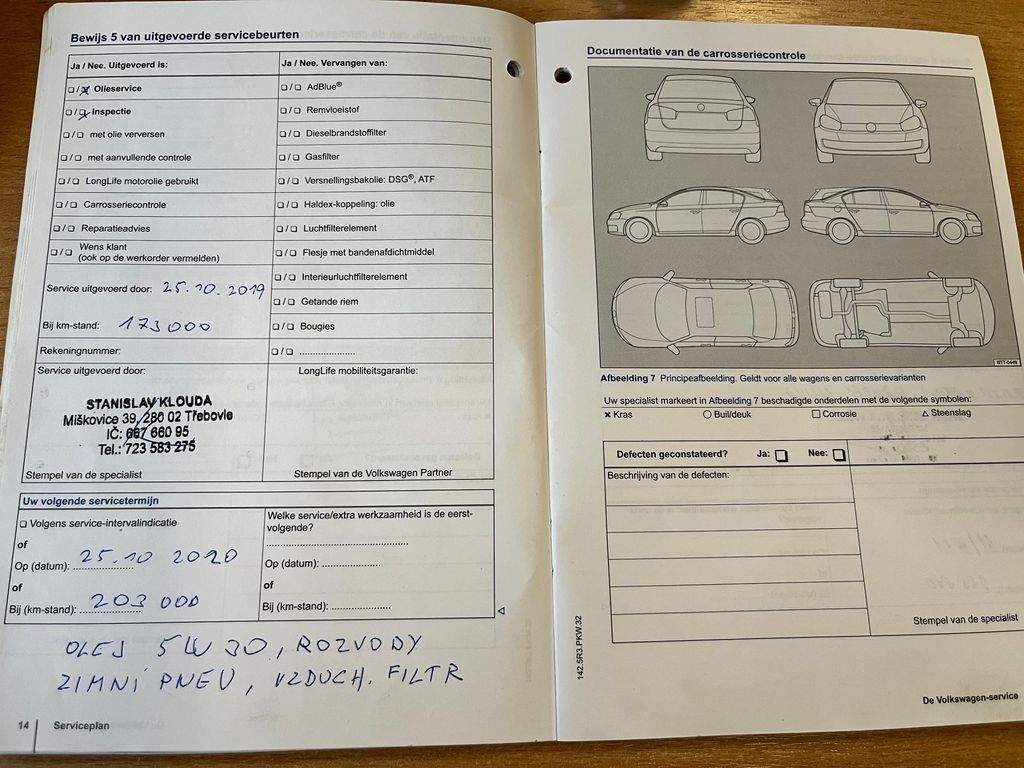 Bewijs 5 van uitgevoerde servicebeurten
Ja / Nee. Uitgevoerd is:
❏ / ❏ Olieservice
❏ / ❏ Inspectie
❏ / ❏ met olie verversen
❏ / ❏ met aanvullende controle
❏ / ❏ LongLife motorolie gebruikt
❏ / ❏ Carrosseriecontrole
❏ / ❏ Reparatieadvies
❏ / ❏ Wens klant
(ook op de werkorder vermelden)
Service uitgevoerd door: 25.10.2019
Bij km-stand: 173000
Rekeningnummer:
Ja / Nee. Vervangen van:
❏ / ❏ AdBlue®
❏ / ❏ Remvloeistof
❏ / ❏ Dieselbrandstoffilter
❏ / ❏ Gasfilter
❏ / ❏ Versnellingsbakolie: DSG®, ATF
❏ / ❏ Haldex-koppeling: olie
❏ / ❏ Luchtfilterelement
❏ / ❏ Flesje met bandenafdichtmiddel
❏ / ❏ Interieurluchtfilterelement
❏ / ❏ Getande riem
❏ / ❏ Bougies
❏ / ❏ ....................
Service uitgevoerd door:
STANISLAV KLOUDA
Miškovice 39, 280 02 Třebovle
IČ: 667 660 95
Tel.: 723 583 275
Stempel van de specialist
LongLife mobiliteitsgarantie:
Stempel van de Volkswagen Partner
Uw volgende servicetermijn
❏ Volgens service-intervalindicatie
of
Op (datum): 25.10 2020
of
Bij (km-stand): 203 000
Welke service/extra werkzaamheid is de eerst-
volgende?
..................................................
Op (datum): ....................
of
Bij (km-stand): ....................
OLEJ 5W30, ROZVODY
ZIMNÍ PNEU, VZDUCH. FILTR
14 Serviceplan
Documentatie van de carrosseriecontrole
BTT-0449
Afbeelding 7 Principeafbeelding. Geldt voor alle wagens en carrosserievarianten
Uw specialist markeert in Afbeelding 7 beschadigde onderdelen met de volgende symbolen:
× Kras ○ Buil/deuk □ Corrosie △ Steenslag
Defecten geconstateerd? Ja: ❏ Nee: ❏
Beschrijving van de defecten:
Stempel van de specialist
142.5R3.PKW.32
De Volkswagen-service